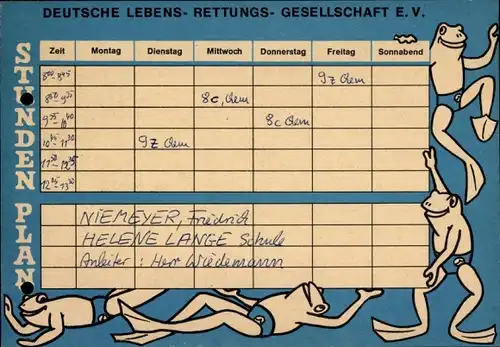 DEUTSCHE LEBENS- RETTUNGS- GESELLSCHAFT E.V.
STUNDEN PLAN
Zeit Montag Dienstag Mittwoch Donnerstag Freitag Sonnabend
800-845 9z Chem
850-935 8c, Chem
955-1040 8c Chem
1045-1130 9z Chem
1150-1235
1245-1330
NIEMEYER, Friedrich
HELENE LANGE Schule
Anleiter: Herr Wiedemann